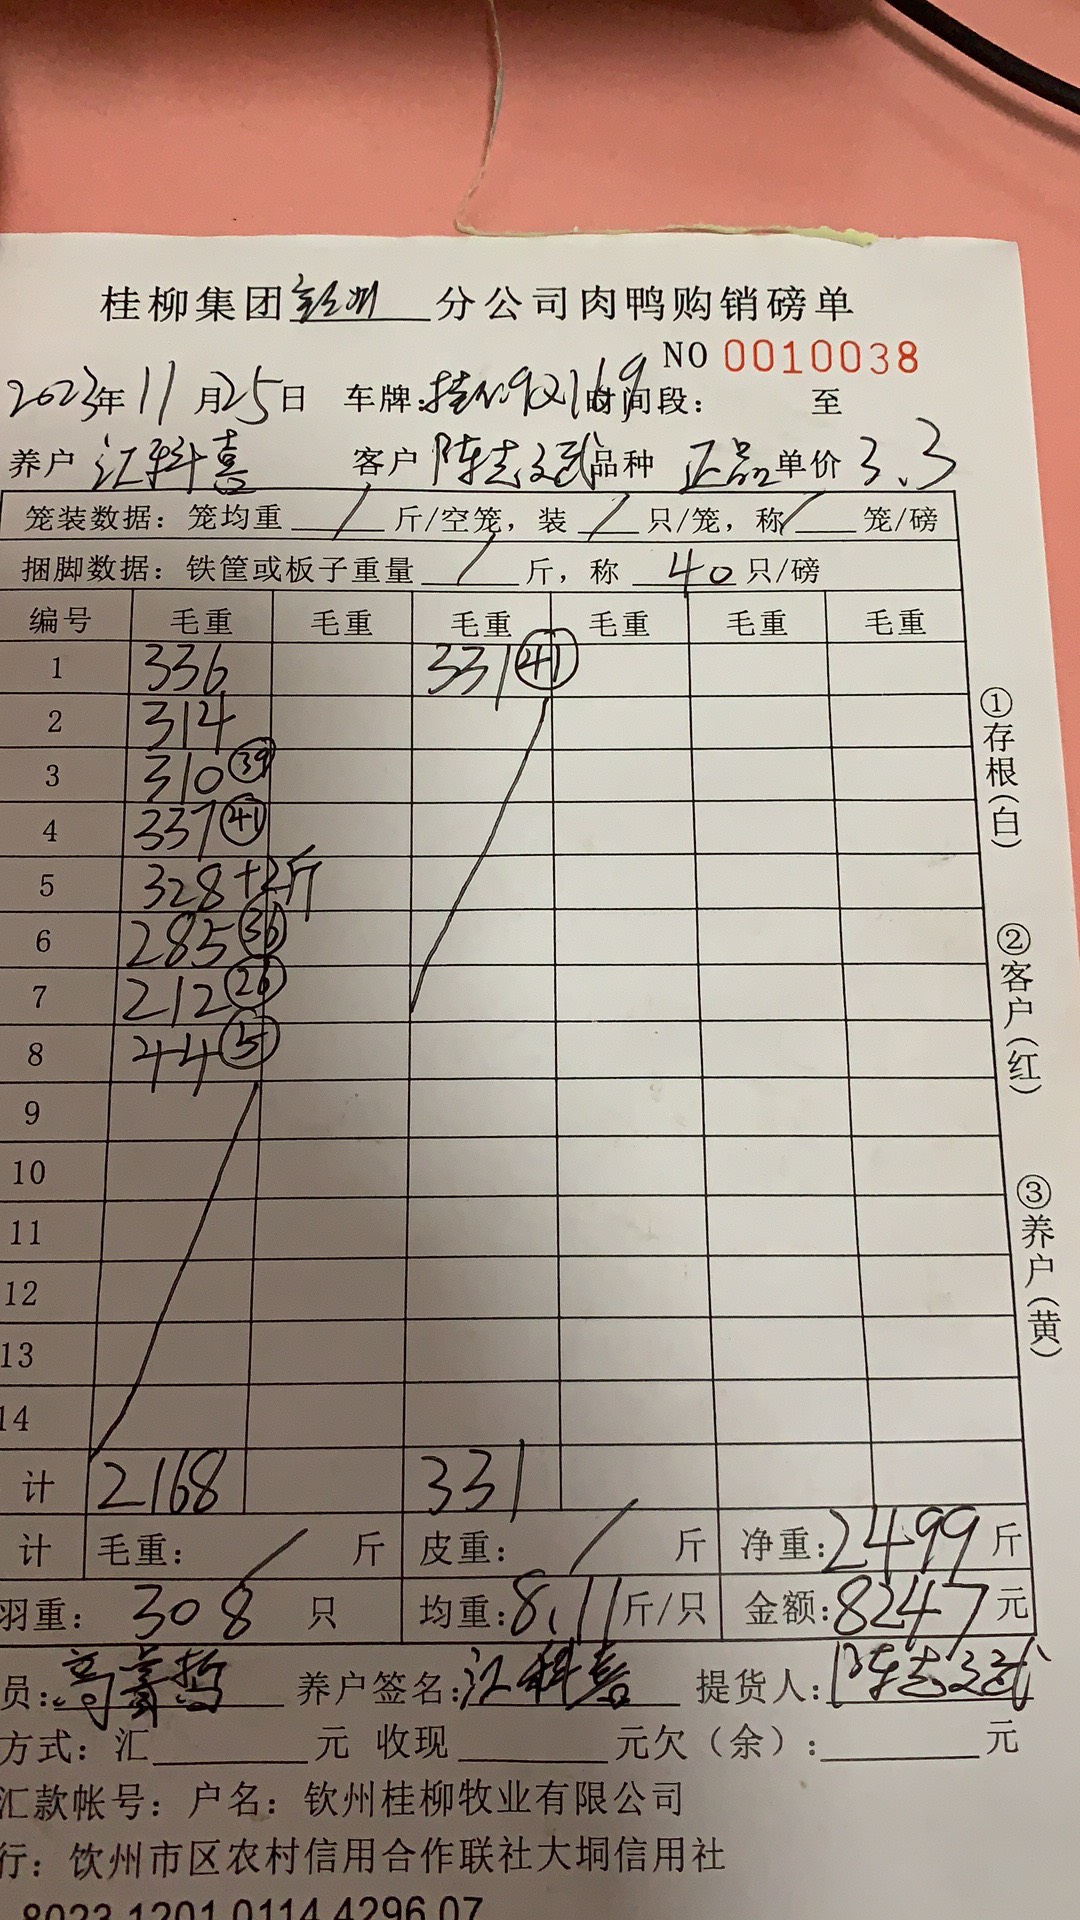 桂柳集团 分公司肉鸭购销磅单
NO 0010038
2023年11月25日 车牌: 时间段: 至
养户 江科喜 客户 陈志武 品种 正品 单价 3.3
笼装数据: 笼均重 / 斤/空笼, 装 / 只/笼, 称 / 笼/磅
捆脚数据: 铁筐或板子重量 / 斤, 称 40 只/磅
编号 毛重 毛重 毛重 毛重 毛重 毛重
1 336 331 (41)
2 314
3 310 (39)
4 337 (41)
5 328+2斤
6 285 (36)
7 212 (26)
8 44 (5)
9
10
11
12
13
14
计 2168 331
计 毛重: / 斤 皮重: / 斤 净重: 2499 斤
羽重: 308 只 均重: 8.11 斤/只 金额: 8247 元
员: 养户签名: 江科喜 提货人: 陈志武
方式: 汇 元 收现 元欠(余): 元
汇款帐号: 户名: 钦州桂柳牧业有限公司
行: 钦州市区农村信用合作联社大垌信用社
8023 1201 0114 4296 07
①存根(白)
②客户(红)
③养户(黄)